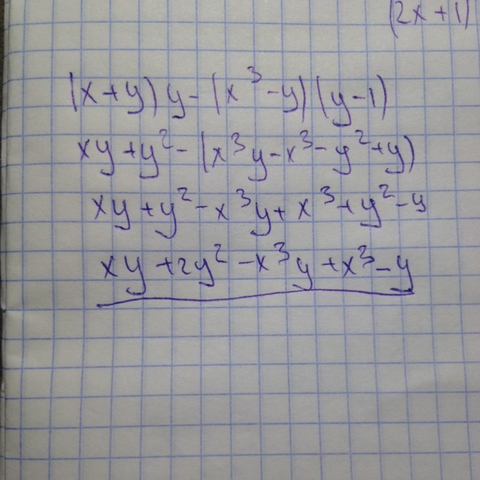 (2x+1)
(x+y)y-(x³-y)(y-1)
xy+y²-(x³y-x³-y²+y)
xy+y²-x³y+x³+y²-y
xy+2y²-x³y+x³-y